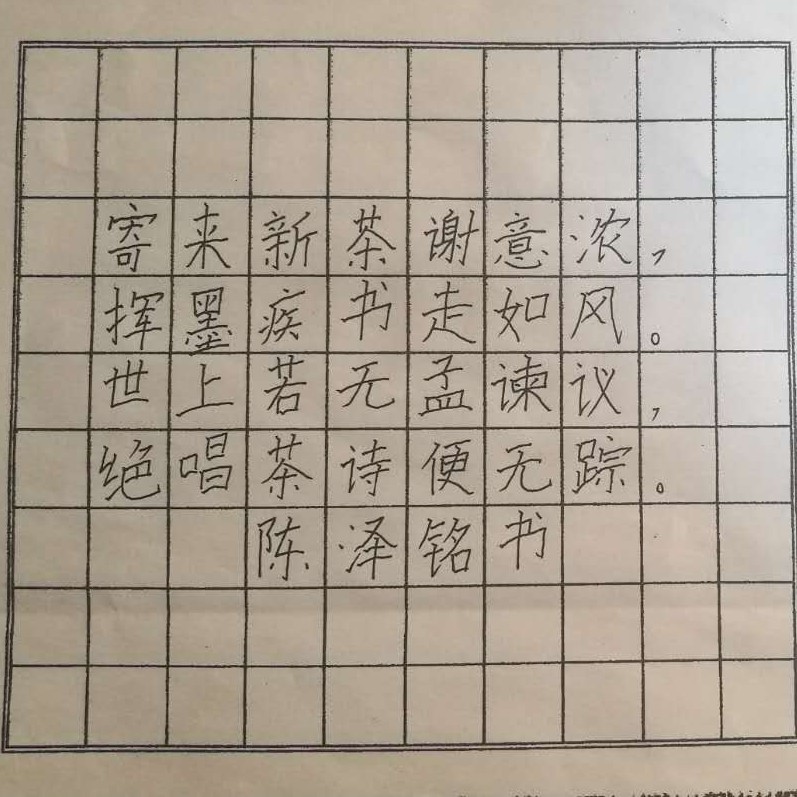 寄来新茶谢意浓，
挥墨疾书走如风。
世上若无孟谏议，
绝唱茶诗便无踪。
陈泽铭书